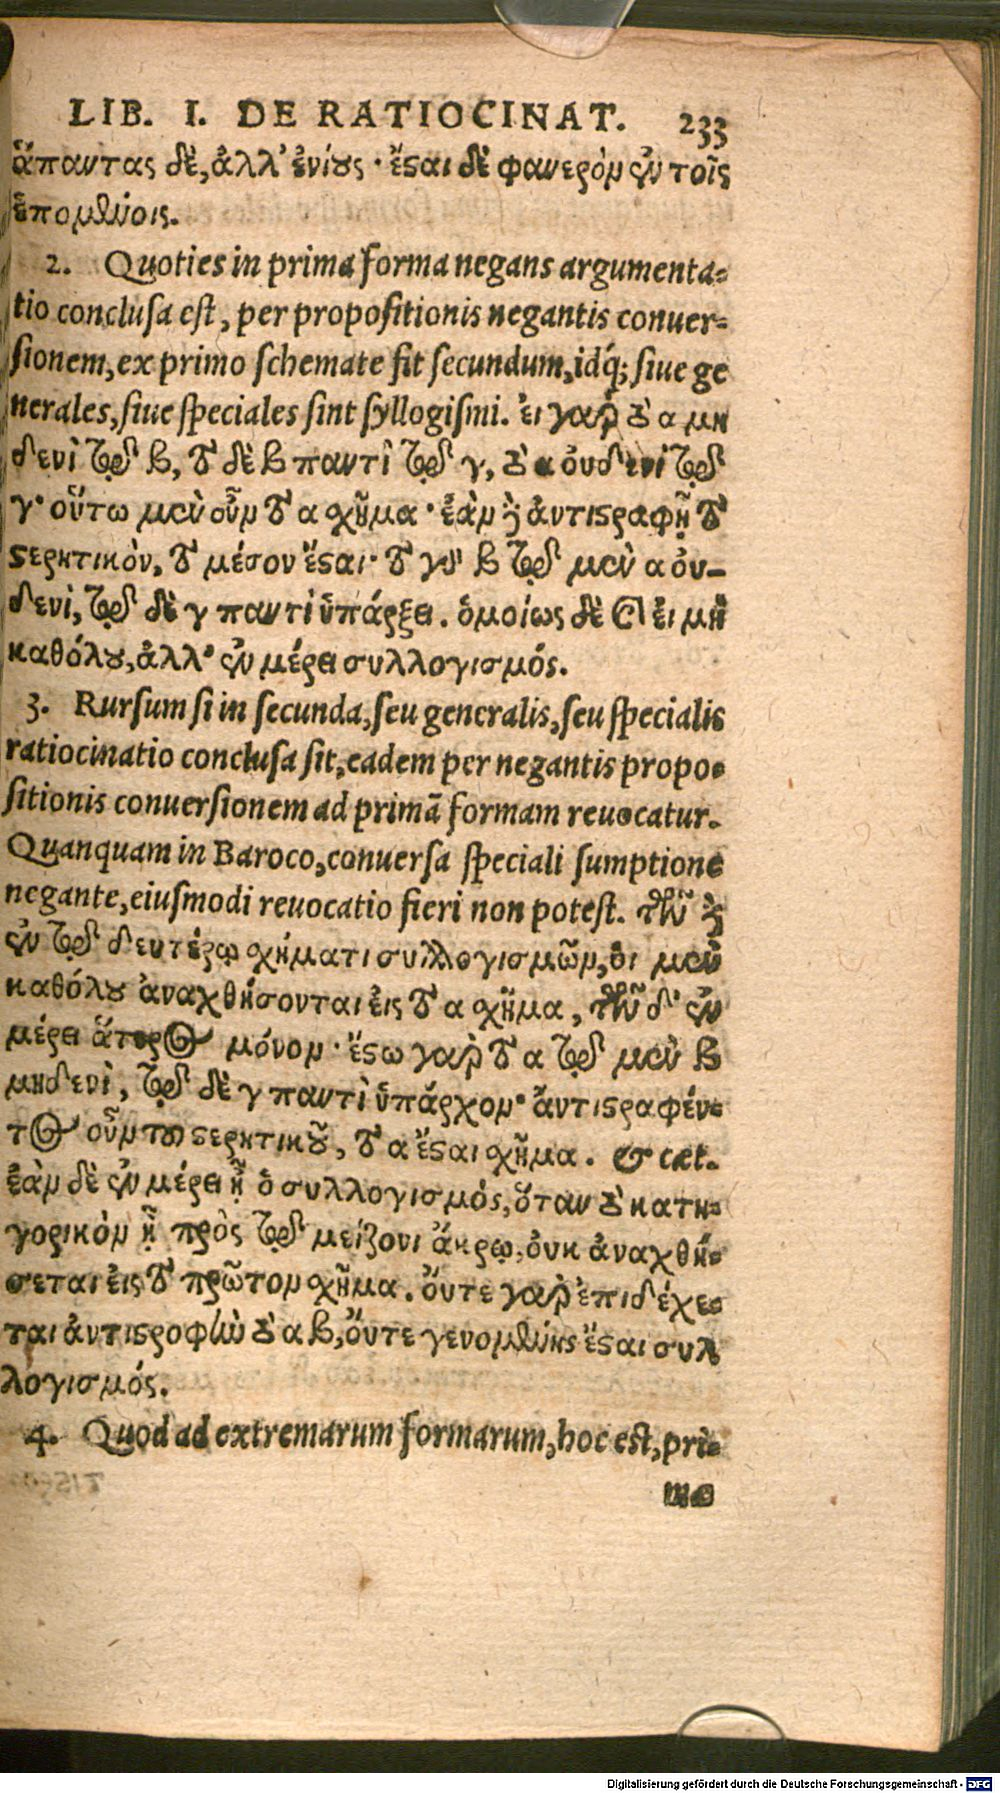 LIB. I. DE RATIOCINAT. 233
ἅπαντας δὲ, ἀλλ' ἐνίους· ἔσαι δὲ φανερὸν ἐν τοῖς
ἑπομένοις.
2. Quoties in prima forma negans argumenta-
tio conclusa est, per propositionis negantis conuer-
sionem, ex primo schemate fit secundum, idq́; siue ge
nerales, siue speciales sint syllogismi. εἰ γὰρ τὸ α μη
δενὶ τῷ β, τὸ δὲ β παντὶ τῷ γ, τὸ α οὐδενὶ τῷ
γ· οὕτω μὲν οὖν τὸ α χῆμα· ἐὰν δ' ἀντιστραφῇ τὸ
στερητικὸν, τὸ μέσον ἔσαι· τὸ γὰρ β τῷ μὲν α οὐ-
δενὶ, τῷ δὲ γ παντὶ ὑπάρξει. ὁμοίως δὲ καὶ εἰ μὴ
καθόλου, ἀλλ' ἐν μέρει συλλογισμός.
3. Rursum si in secunda, seu generalis, seu specialis
ratiocinatio conclusa sit, eadem per negantis propo-
sitionis conuersionem ad primā formam reuocatur.
Quanquam in Baroco, conuersa speciali sumptione
negante, eiusmodi reuocatio fieri non potest. τῶν δ'
ἐν τῷ δευτέρῳ χήματι συλλογισμῶν, οἱ μὲν
καθόλου ἀναχθήσονται εἰς τὸ α χῆμα, τῶν δ' ἐν
μέρει ἅτερος μόνον· ἔστω γὰρ τὸ α τῷ μὲν β
μηδενὶ, τῷ δὲ γ παντὶ ὑπάρχον· ἀντιστραφέν-
τος οὖν τοῦ στερητικοῦ, τὸ α ἔσαι χῆμα. & cæt.
ἐὰν δὲ ἐν μέρει ᾖ ὁ συλλογισμός, ὅταν τὸ κατη-
γορικὸν ᾖ πρὸς τῷ μείζονι ἄκρῳ, οὐκ ἀναχθή-
σεται εἰς τὸ πρῶτον χῆμα. οὔτε γὰρ ἐπιδέχε-
ται ἀντιστροφὴν τὸ α β, οὔτε γενομένης ἔσαι συλ
λογισμός.
4. Quod ad extremarum formarum, hoc est, pri-
mæ